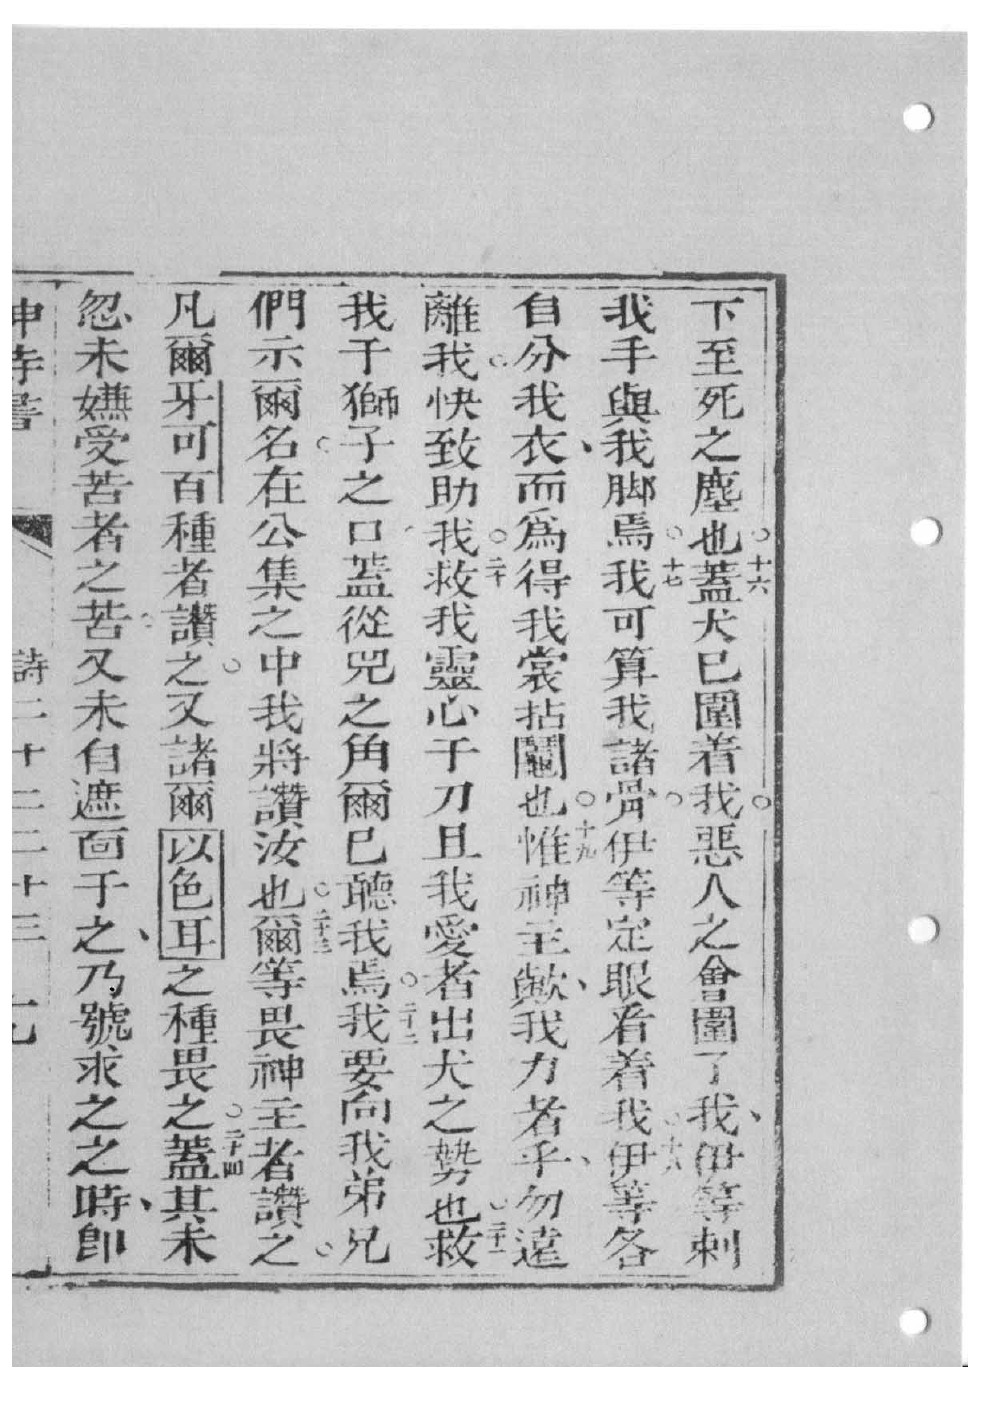 下至死之塵也○十六蓋犬已圍着我○惡人之會圍了我、伊等刺
我手與我脚焉○十七我可算我諸骨○伊等定眼看着我○十八伊等各
自分我衣、而爲得我裳拈鬮也○十九惟神主歟、我力者乎、勿遠
離我○快致助我○二十救我靈心于刀且我愛者出犬之勢也○二十一救
我于獅子之口蓋從兕之角爾已聽我焉○二十二我要向我弟兄
們示爾名○在公集之中我將讚汝也○二十三爾等畏神主者讚之○
凡爾牙可百種者讚之○又諸爾以色耳之種畏之○二十四蓋其未
忽未嫌受苦者之苦○又未自遮面于之、乃號求之之時、卽
神詩書 詩二十二二十三 十九